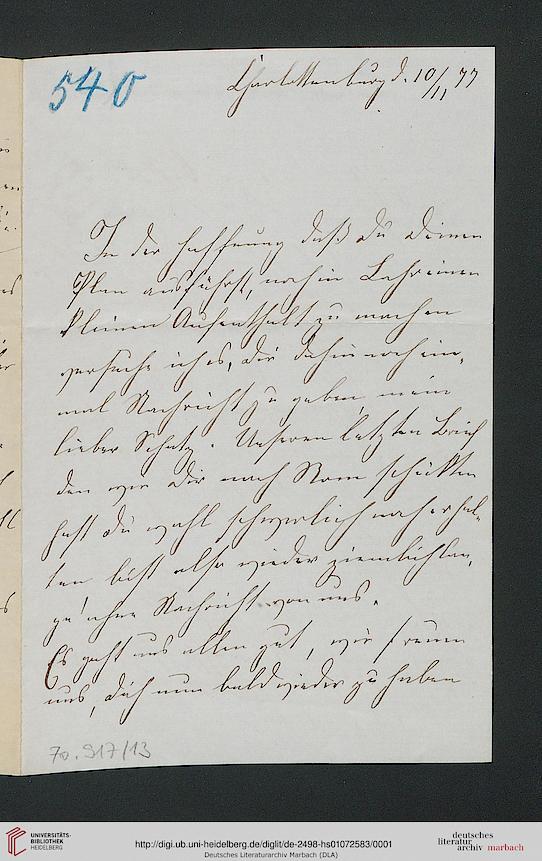 540
Charlottenburg d. 10/11 77
In der Hoffnung daß du deinen
Plan ausführst, noch in
kleinen Aufenthalt zu machen
versuche ich es, dir dahin noch ein-
mal Nachricht zu geben, mein
lieber Schatz. Unseren letzten Brief
den wir dir nach Rom schickten
hast du wohl schwerlich noch erhal-
ten bist also wieder ziemlich lan-
ge ohne Nachricht von uns.
Es geht uns allen gut, wir freuen
uns, dich nun bald wieder zu haben
70.917/13
UNIVERSITÄTS-
BIBLIOTHEK
HEIDELBERG
http://digi.ub.uni-heidelberg.de/diglit/de-2498-hs01072583/0001
Deutsches Literaturarchiv Marbach (DLA)
deutsches
literatur
archiv marbach